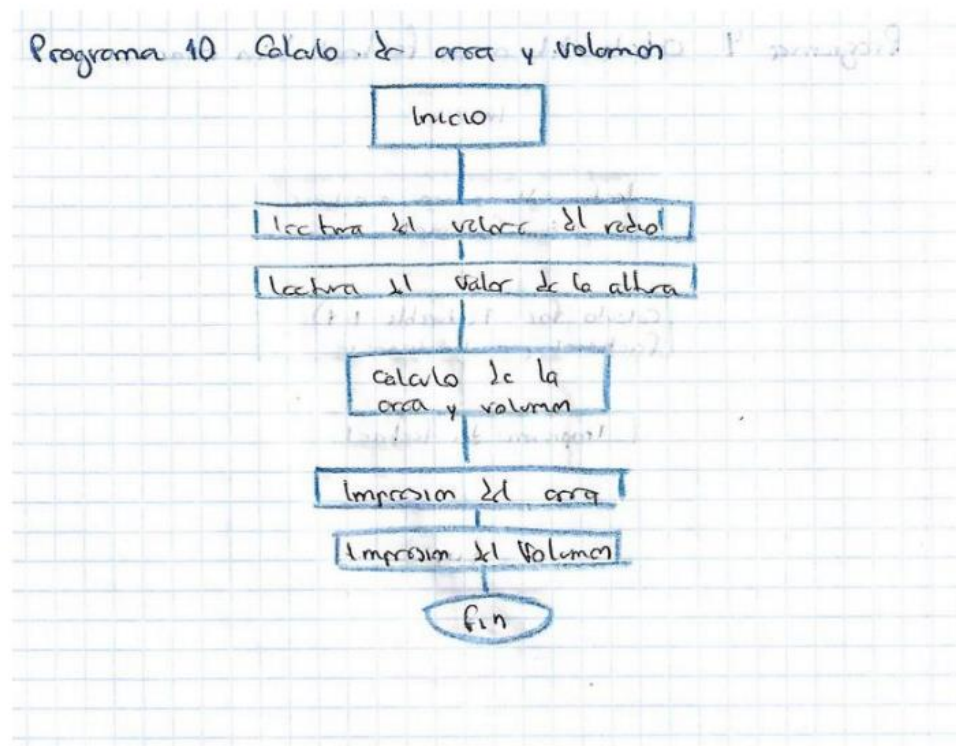 Programa 10 Calculo de area y volumen
Inicio
lectura del valore del radio
lectura del valor de la altura
calculo de la
area y volumen
Impresion del area
Impresion del Volumen
fin